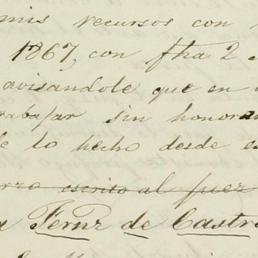 mis recursos con
1867, con fha 2
avisandole que en
trabajar sin honora
lo hecho desde
escrito al juez
Fernz de Castro